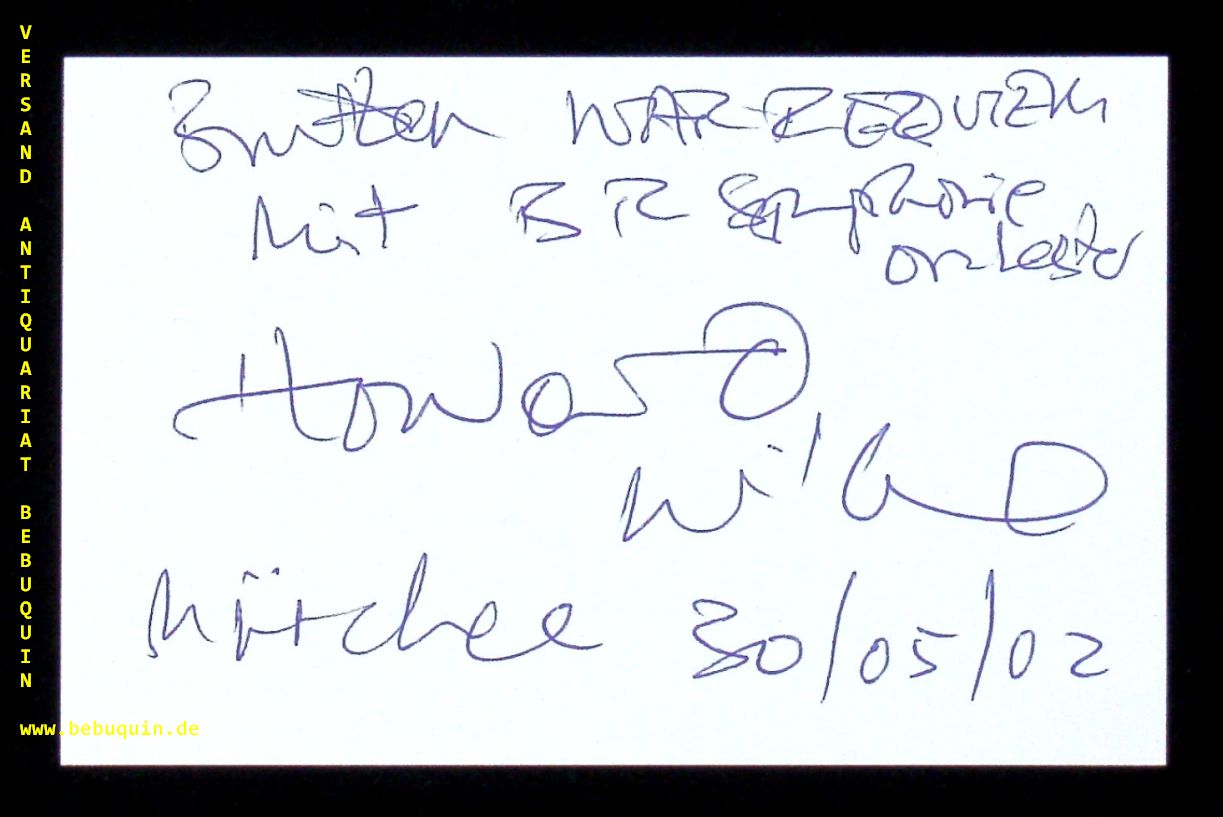 VERSAND ANTIQUARIAT BEBUQUIN
www.bebuquin.de
Britten WAR-REQUIEM
Mit BR Symphonie
orchester
Howard
Mitchell 30/05/02